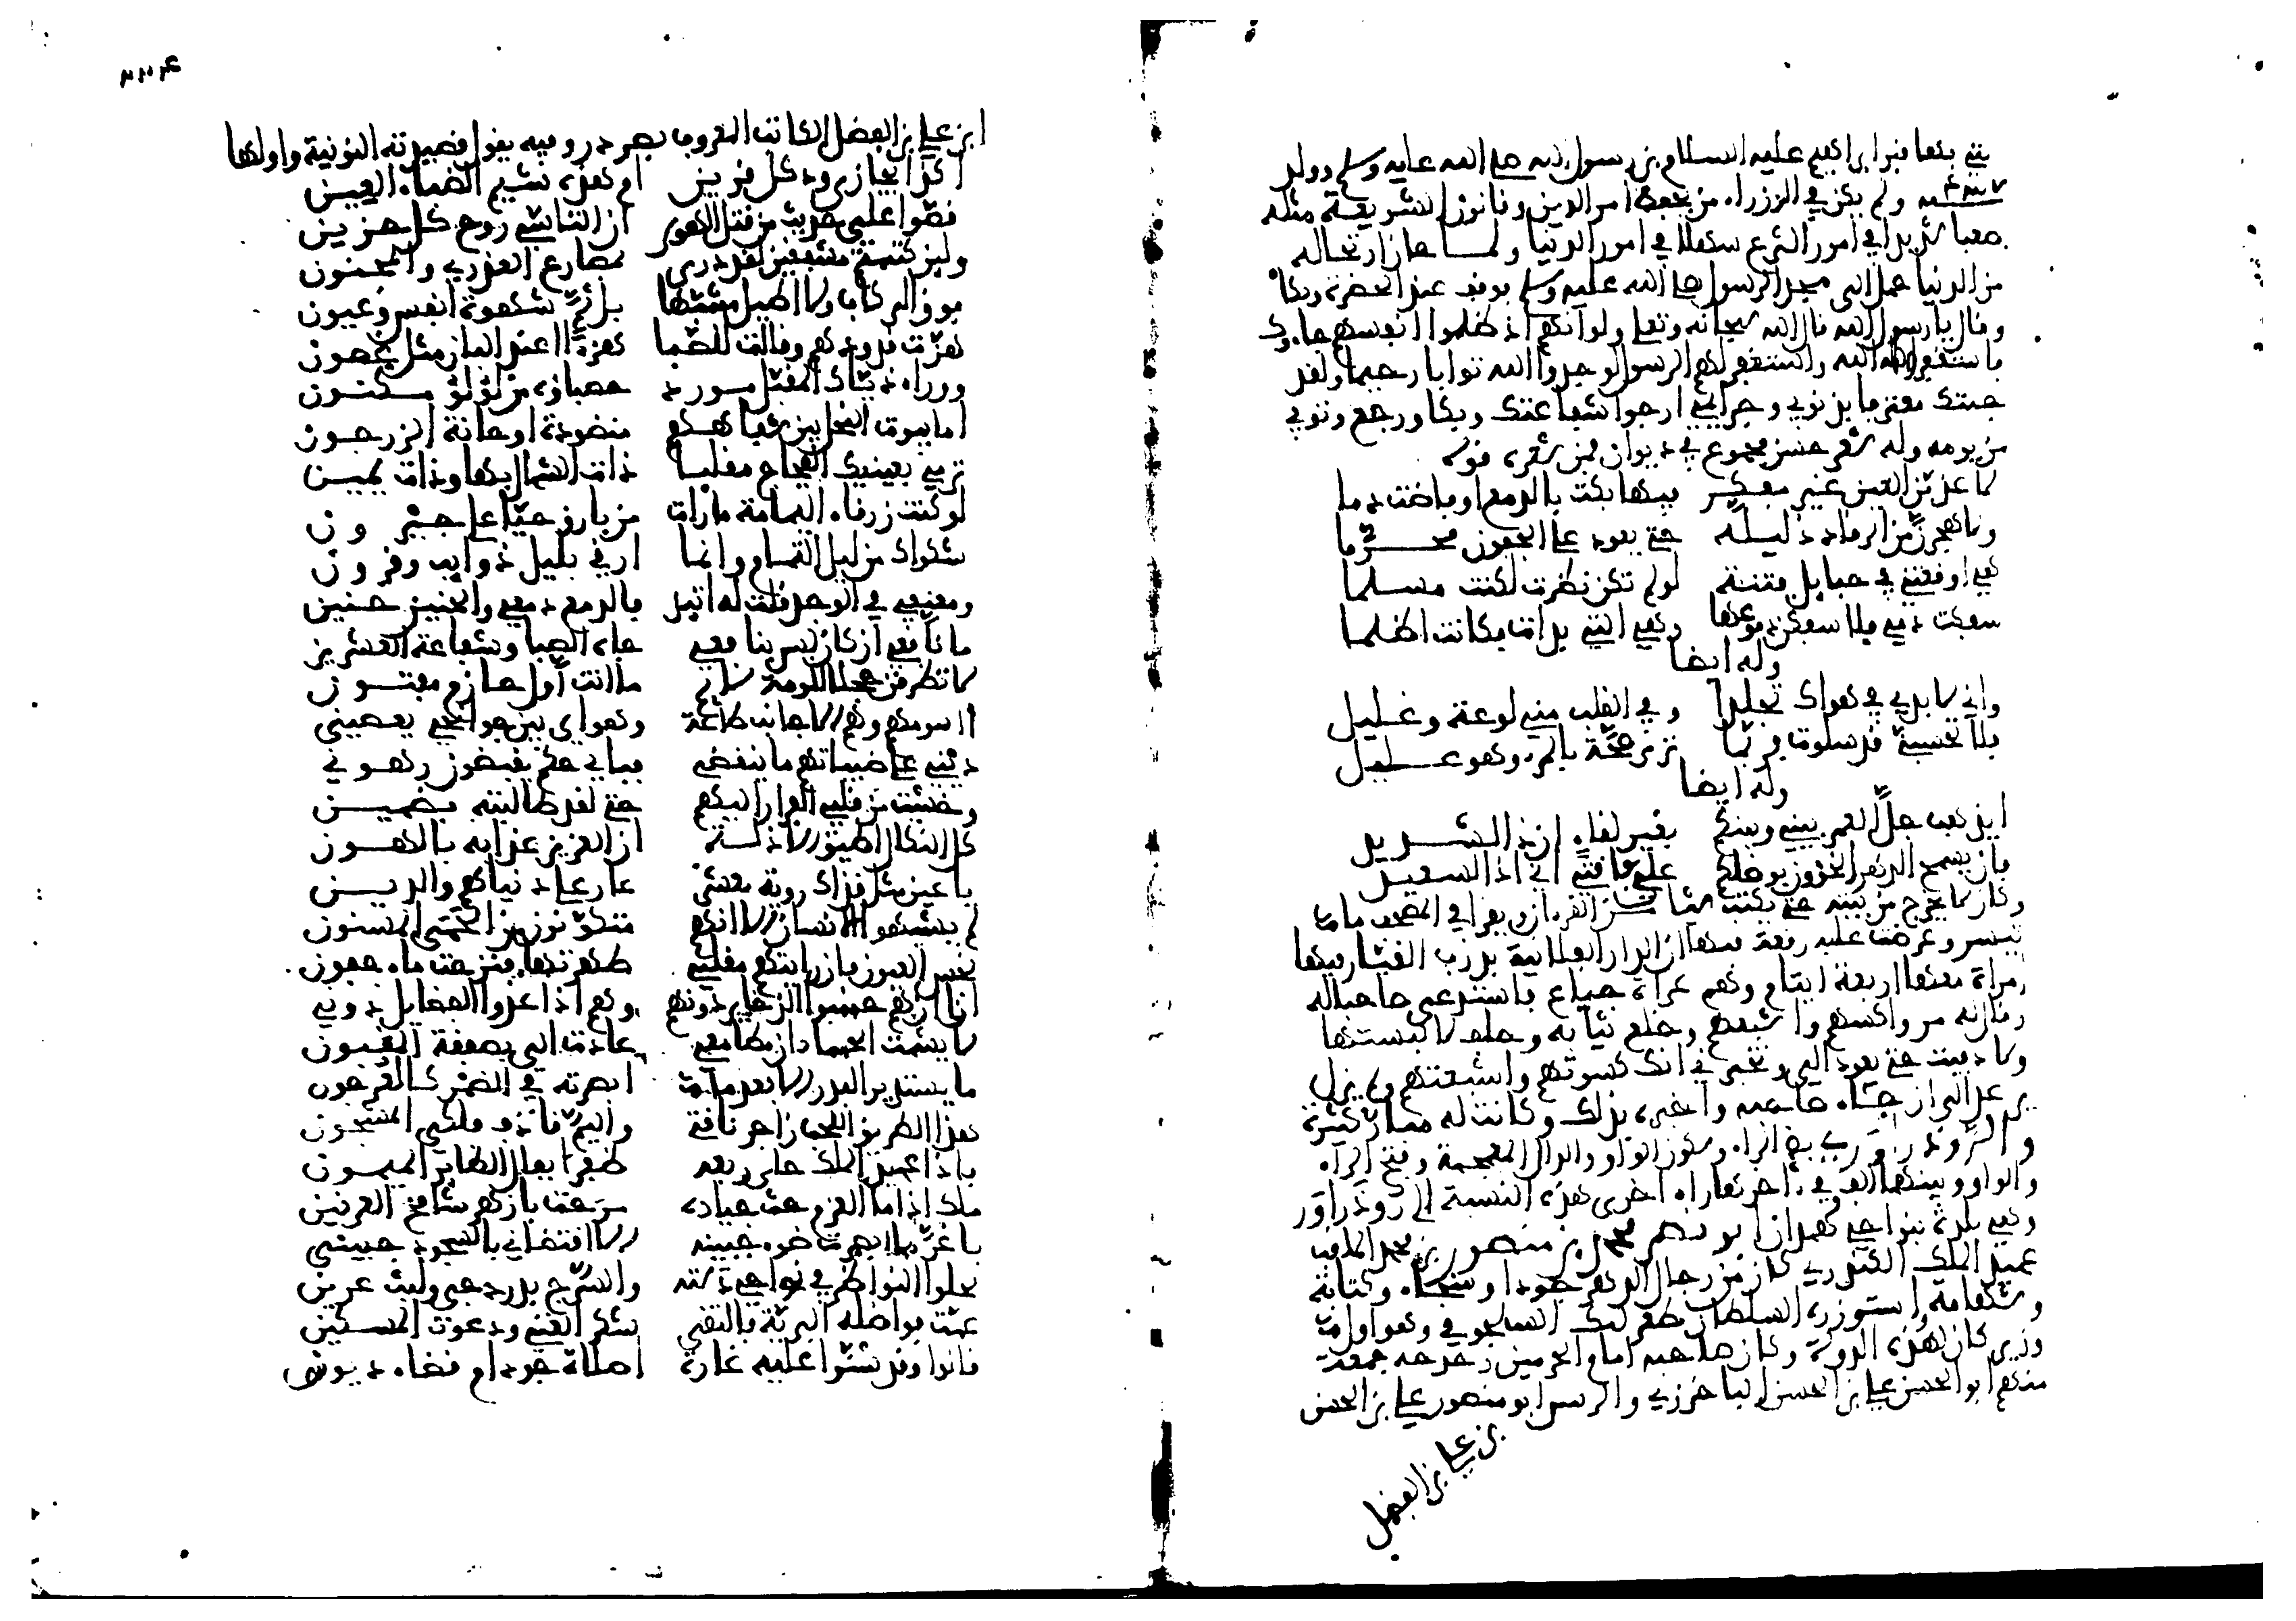 التي بها قبر ابراهيم عليه السلام بن رسول الله صلى الله عليه وسلم وولد
ولم يكن في الوزراء من يحفظ امر الدين وقانون الشريعة مثله
صعبا شديدا في امور الشرع سهلا في امور الدنيا ولما حان ارتحاله
من الدنيا حمل الى مسجد الرسول صلى الله عليه وسلم فوقف عند الحضرة وبكا
وقال يا رسول الله قال الله سبحانه وتعلى ولو انهم اذ ظلموا انفسهم جاءوك
فاستغفروا الله واستغفر لهم الرسول لوجدوا الله توابا رحيما ولقد
جئتك معترفا بذنوبي وجرايمي ارجوا شفاعتك وبكا ورجع وتوفي
من يومه وله شعر حسن مجموع في ديوان فمن شعره قوله
لاعذبن العين غير مفكر فيها بكت بالدمع او فاضت دما
ولاهجرن من الرقاد لذيذه حتى يعود على الجفون محرما
هي اوقعتني في حبايل فتنة لو لم تكن نظرت لكنت مسلما
سفكت دمي فلاسفكن دموعها وهي التي بدات فكانت اظلما
وله ايضا
واني لابدي في هواك تجلدا وفي القلب مني لوعة وغليل
فلا تحسبن قد سلوت فربما ترى صحة بالمرء وهو عليل
وله ايضا
ايذهب جل العمر بيني وبينكم بغير لقاء ان ذا لشديد
فان يسمح الدهر الخؤون بوصلكم على فاقتي اني اذا لسعيد
وكان لا يخرج من بيته حتى يكتب شيا من القرءان ويقرا في المصحف ما
تيسر وعرضت عليه رقعة فيها ان الدار الفلانية بدرب القيار فيها
امراة معها اربعة ايتام وهم عراة جياع فاستدعى صاحبا له
وقال له مر واكسهم واشبعهم وخلع ثيابه وحلف لا لبستها
ولا دفيت حتى تعود الي وتخبرني انك كسوتهم واشبعتهم ولم يزل
يرعد الى ان جاء صاحبه واخبره بذلك وكانت له مبار كثيرة
والروذراوري بضم الراء وسكون الواو والذال المعجمة وفتح الراء
والواو وبينهما الف وفي اخرها راء اخرى هذه النسبة الى روذراور
وهي بلدة بنواحي همدان ابو نصر محمد بن منصور بن محمد الملقب
عميد الملك الكندري كان من رجال الدهر جودا وسخاء وكتابة
وشهامة استوزره السلطان طغرلبك السلجوقي وهو اول
وزير كان لهذه الدولة وكان صاحبه امام الحرمين ومدحه جمعة
منهم ابو الحسن علي بن الحسن الباخرزي والرييس ابو منصور علي بن الحسن
بن علي بن الفضل
ابن علي بن الفضل الكاتب المعروف بصردر وفيه يقول قصيدته النونية واولها
اكذا يجازى ود كل قرين ام هذه شيم الظباء العين
قصوا علي حديث من قتل الهوى ان التاسي روح كل حزين
ولئن كتمتم مشفقين لقد درى بمصارع العذري والمجنون
فوق الركاب ولا اطيل مشبها بل ثم شهوة انفس وعيون
هزت قدودهم وقالت للصبا هزءا اعند البان مثل غصون
ووراء ذياك المقبل مورد حصباؤه من لؤلؤ مكنون
اما بيوت النحل بين شفاههم منضودة او حانة الزرجون
ترمي بعينيك الفجاج مقلبا ذات الشمال بها وذات يمين
لو كنت زرقاء اليمامة ما رات من بارق حيا على جيرون
شكواك من ليل التمام وانما ارقي بليل ذوايب وقرون
ومعنفي في الوجد قلت له اتيد فالدمع دمعي والحنين حنين
ما نافعي ان كان ليس بنافعي جاه الصبا وشفاعة العشرين
لا تطرقن خجلا للومة لائم ما انت اول حازم مفتون
ااسومهم وهم الاجانب طاعة وهواي بين جوانحي يعصيني
ديني على ظبياتهم ما ينقضي فباي حكم يقبضون رهوني
وخشيت من قلبي الفرار اليهم حتى لقد طالبته بضمين
كل النكال اطيق الا ذلة ان العزيز عذابه بالهون
يا عين مثل قذاك روية معشر عار على دنياهم والدين
لم يشبهوا الانسان الا انهم متكونون من الحمى المسنون
نجس العيون فان راتهم مقلتي طهرتها فنزحت ماء جفون
انا ان هم حسبوا الذخاير دونهم وهم اذا عدوا الفضايل دوني
لا يشمت الحساد ان مطامعي عادت الي بصفقة المغبون
ما يستدير البدر الا بعد ما ابصرته في الضمر كالعرجون
هذا الطريق اللحب زاجر ناقتي واليم قاذف فلكي المشحون
فاذا عميد الملك حلى ربعه ظفرا بفال الطاير الميمون
ملك اذا ما العزم حث جياده مرحت بازهر شامخ العرنين
يا غر ما ابصرت ضوء جبينه الا اقتضاني بالسجود جبيني
يجلوا النواظر في نواحي دسته والسرج بدر دجى وليث عرين
عمت فواضله البرية فالتقى شكر الغني ودعوة المسكين
قالوا وقد شنوا عليه غارة اصلاة جود ام قضاء ديون